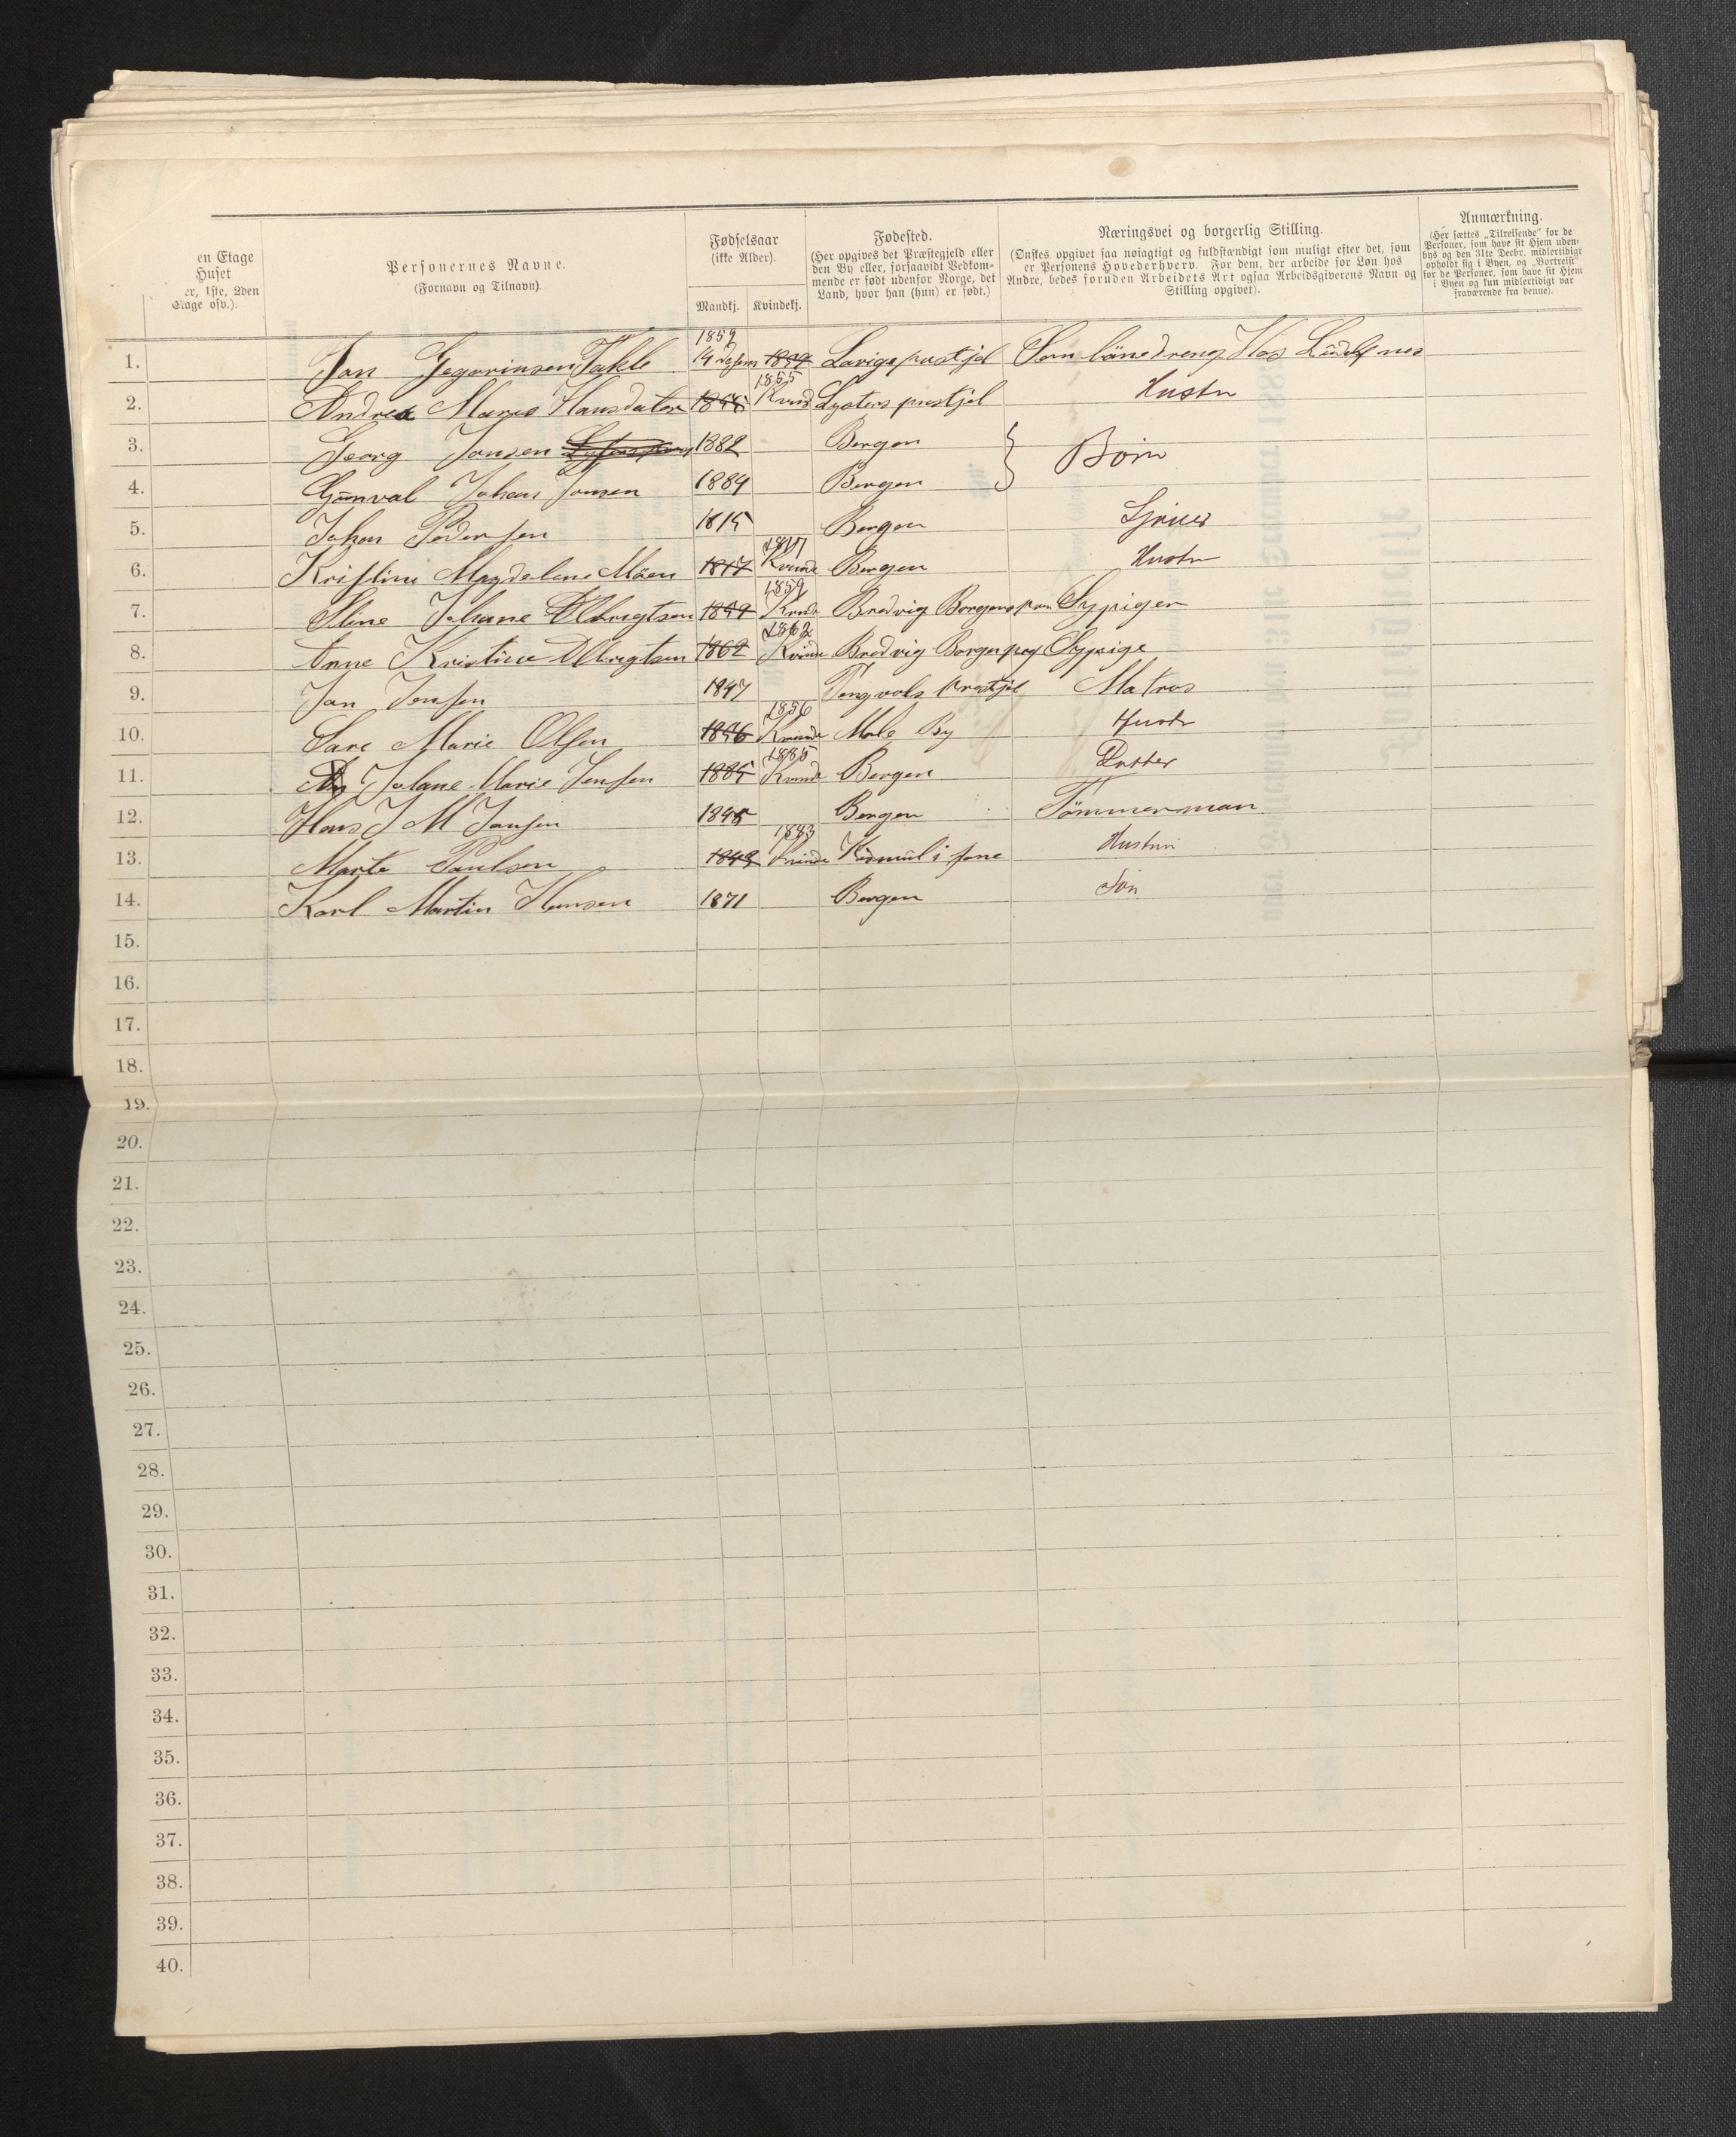 en Etage
Huset
er, 1ste, 2den
Etage osv.).
Personernes Navne.
(Fornavn og Tilnavn).
Fødselsaar
(ikke Alder).
Mandkj. Kvindekj.
Fødested.
(Her opgives det Præstegjeld eller
den By eller, forsaavidt Bedkom-
mende er født udenfor Norge, det
Land, hvor han (hun) er født.)
Næringsvei og borgerlig Stilling.
(Ønskes opgivet saa nøiagtigt og fuldstændigt som muligt efter det, som
er Personens Hovederhverv. For dem, der arbeide for Løn hos
Andre, bedes foruden Arbeidets Art ogsaa Arbeidsgiverens Navn og
Stilling opgivet).
Anmærkning.
(Her sættes „Tilreisende" for de
Personer, som have sit Hjem uden-
bys og den 31te Decbr. midlertidigt
opholdt sig i Byen, og „Bortreist"
for de Personer, som have sit Hjem
i Byen og kun midlertidigt var
fraværende fra denne).
1859
1. Jan Takle 14 1859 Lavigs prestjel Som hos
1855
2. Andrea Marie Hansdater 1855 Kvind Lysters prestjel Hustru
3. Georg Jansen 1882 Bergen } Börn
4. Johan Jansen 1884 Bergen
5. Johan Pedersen 1815 Bergen
1817
6. Kristine Magdelene Möen 1817 Kvinde Bergen Hustr
1859
7. Stine Johane 1859 Kvinde Bredvig Sypiger
1862
8. Anne Kristine 1862 Kvinde Bredvig Sypige
9. Jan Jensen 1847 Tengvols prestjel Matros
1856
10. Sare Marie Olsen 1856 Kvinde Mole By Hustr
1885
11. Johane Marie Jensen 1885 Kvinde Bergen Datter
12. Hans J M Jansen 1845 Bergen Tömmerman
1883
13. Marte Paulsen 1843 Kvinde i Hustru
14. Karl Martin Hansen 1871 Bergen Sön
15.
16.
17.
18.
19.
20.
21.
22.
23.
24.
25.
26.
27.
28.
29.
30.
31.
32.
33.
34.
35.
36.
37.
38.
39.
40.